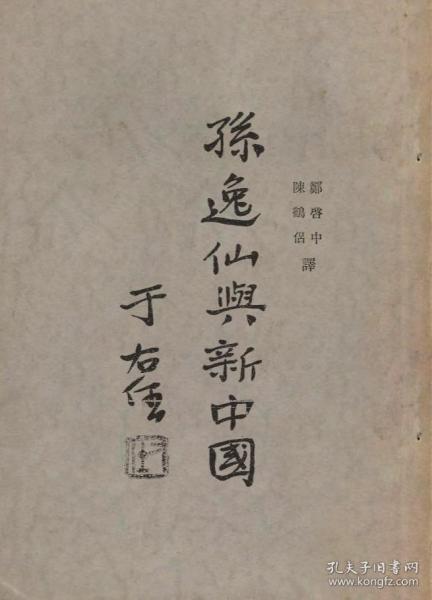 鄒啓中
陳鶴侶
譯
孫逸仙與新中國
于右任
孔夫子旧书网